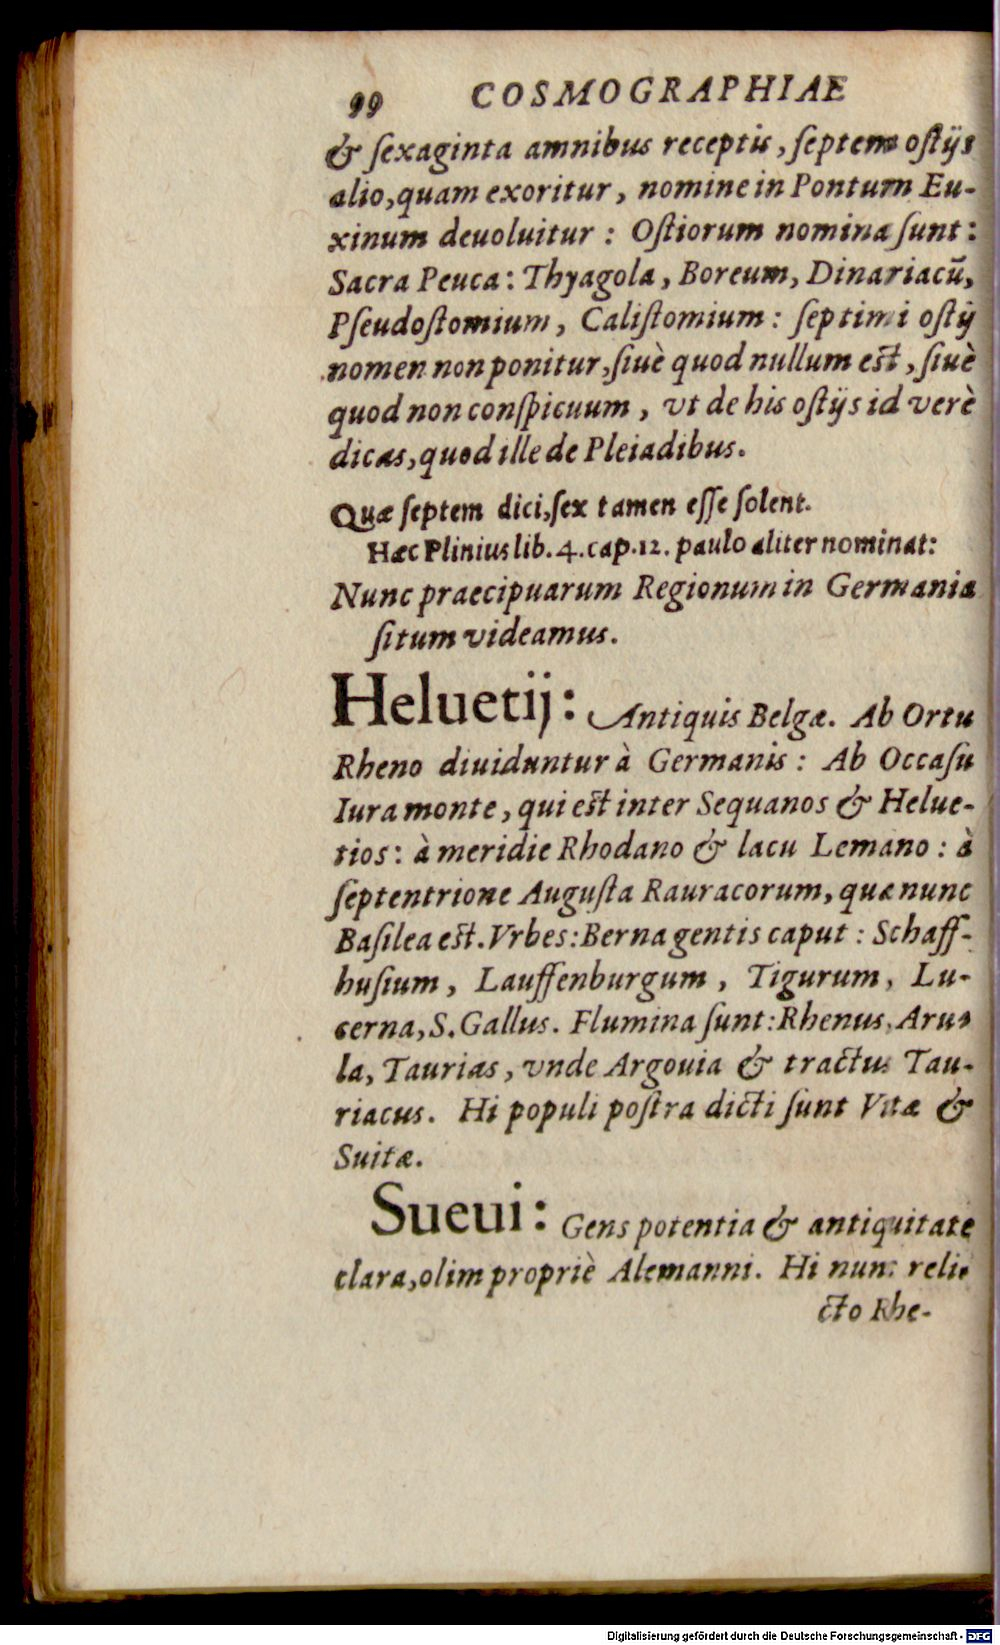 99 COSMOGRAPHIAE
& ſexaginta amnibus receptis, ſeptem oſtijs
alio, quam exoritur, nomine in Pontum Eu-
xinum deuoluitur: Oſtiorum nomina ſunt:
Sacra Peuca: Thyagola, Boreum, Dinariacū,
Pſeudoſtomium, Caliſtomium: ſeptimi oſtij
nomen non ponitur, ſiuè quod nullum eſt, ſiuè
quod non conſpicuum, vt de his oſtijs id verè
dicas, quod ille de Pleiadibus.
Quæ ſeptem dici, ſex tamen eſſe ſolent.
Hæc Plinius lib. 4. cap. 12. paulo aliter nominat:
Nunc praecipuarum Regionum in Germania
ſitum videamus.
Heluetij: Antiquis Belgæ. Ab Ortu
Rheno diuiduntur à Germanis: Ab Occaſu
Iura monte, qui eſt inter Sequanos & Helue-
tios: à meridie Rhodano & lacu Lemano: à
ſeptentrione Auguſta Rauracorum, quæ nunc
Baſilea eſt. Vrbes: Berna gentis caput: Schaff-
huſium, Lauffenburgum, Tigurum, Lu-
cerna, S. Gallus. Flumina ſunt: Rhenus, Aru-
la, Taurias, vnde Argouia & tractus Tau-
riacus. Hi populi poſtra dicti ſunt Vitæ &
Suitæ.
Sueui: Gens potentia & antiquitate
clara, olim propriè Alemanni. Hi nunc reli-
cto Rhe-
Digitalisierung gefördert durch die Deutsche Forschungsgemeinschaft - DFG